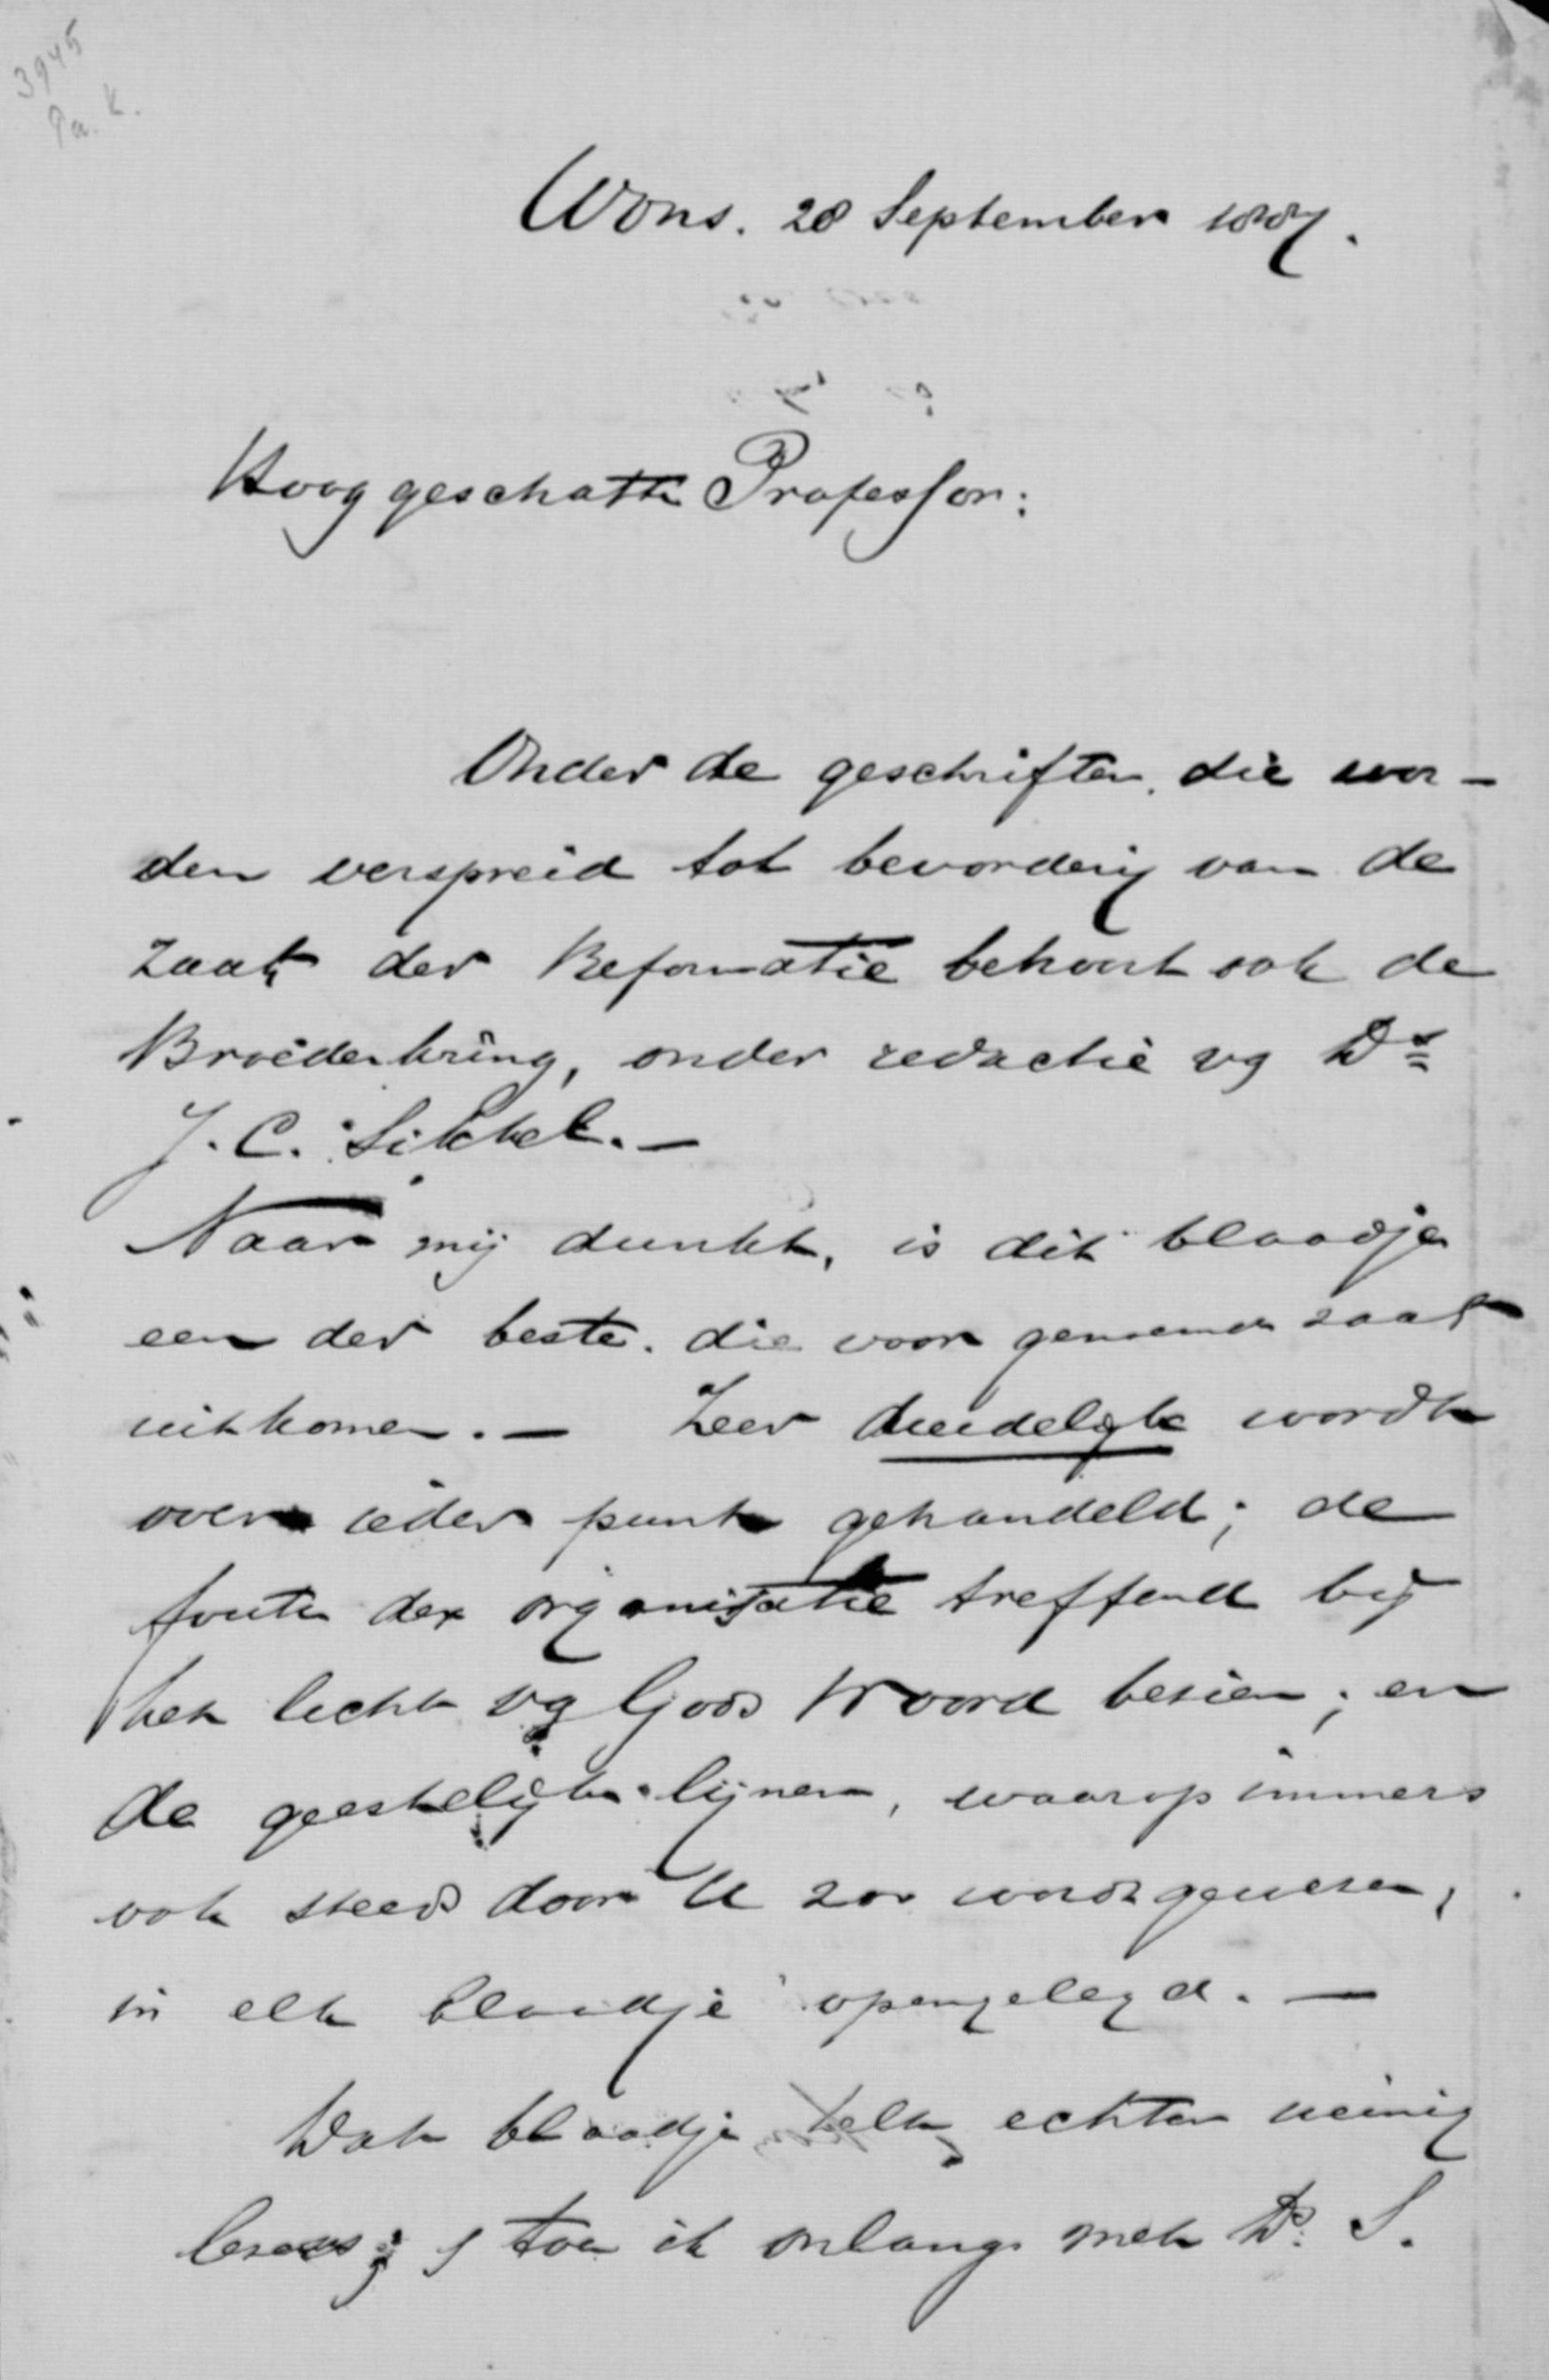 3945
Pa. K.
Wons. 28 September 1887.
Hooggeschatte Professor:
Onder de geschriften, die wor-
den verspreid tot bevordering van de
zaak der Reformatie behoort ook de
Broederkring, onder redactie vg Ds
J. C. Sikkel. —
Naar mij dunkt, is dit blaadje
een der beste, die voor genoemde zaak
uitkomen. — Zeer duidelijk wordt
over ieder punt gehandeld; de
fouten der organisatie treffend bij
het licht vg Gods Woord bezien; en
de geestelijke lijnen, waarop immers
ook steeds door U zoo wordt gewezen,
in elk blaadje opengelegd. —
Dat blaadje telt echter weinig
lezers; toen ik onlangs met Ds. S.